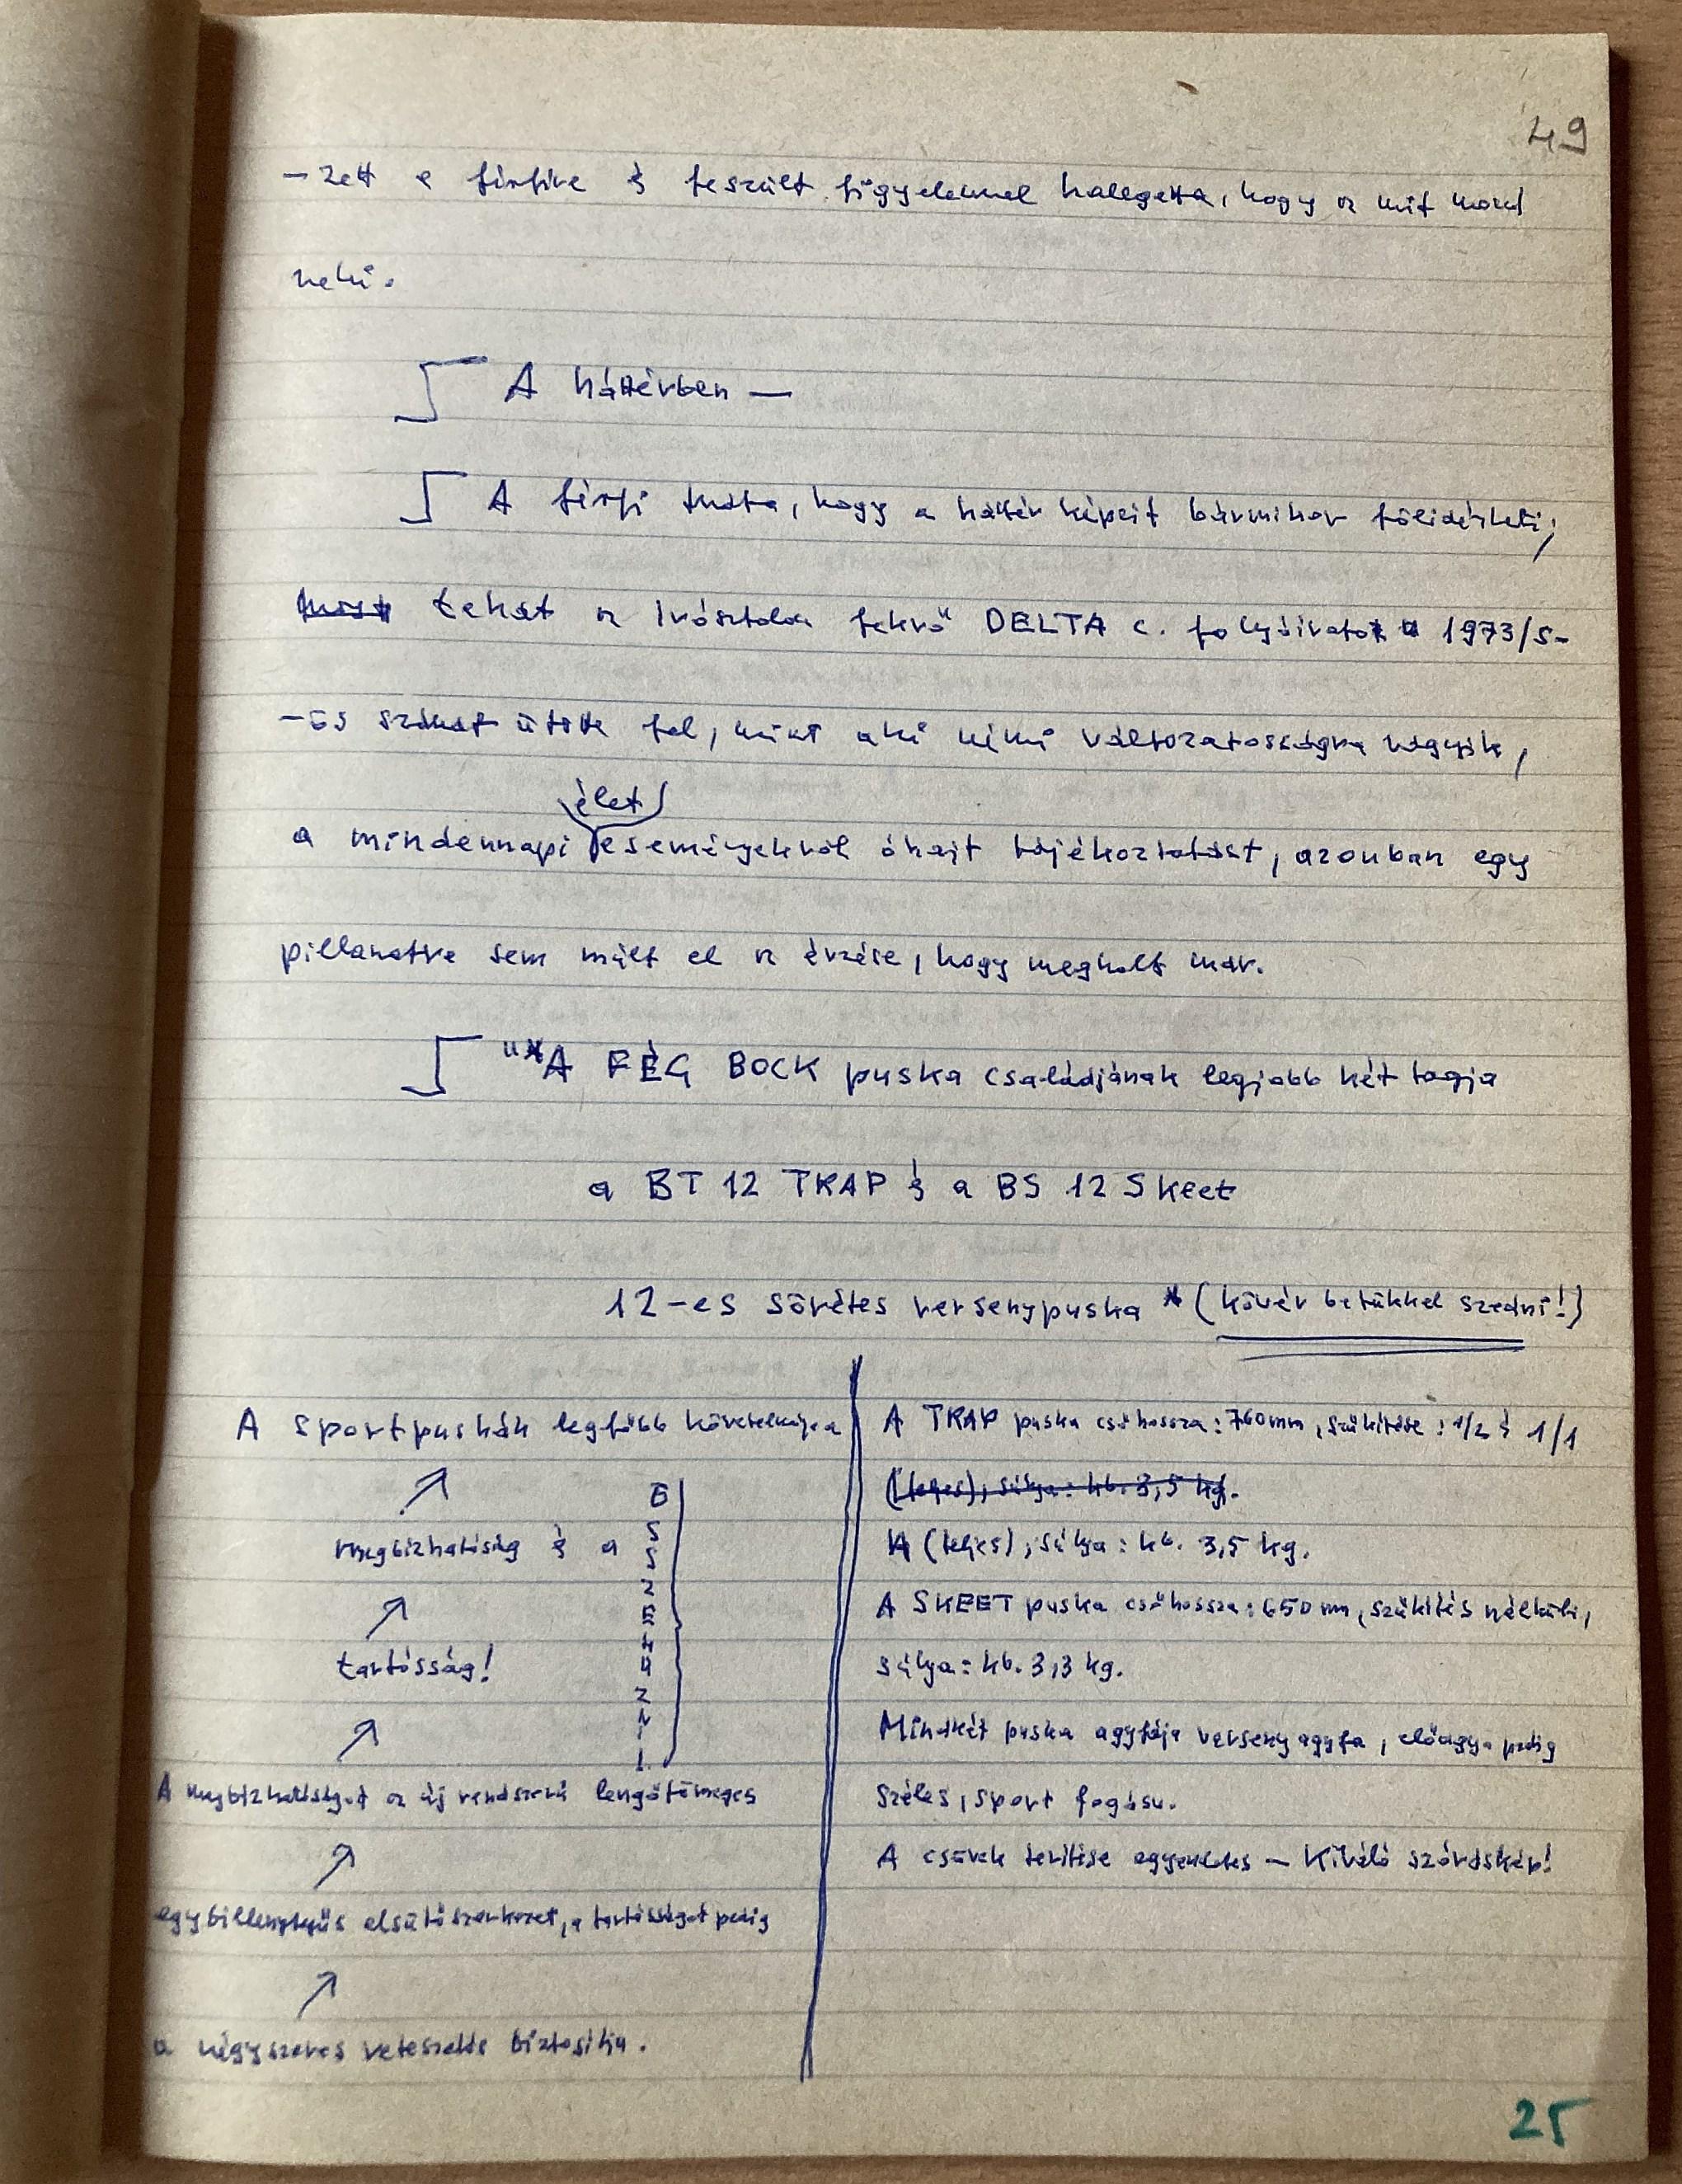 49
-zett a férfira és feszült figyelemmel hallgatta, hogy az mit mond
neki.
A háttérben —
A férfi tudta, hogy a háttér képeit bármikor fölidézheti;
most tehát az íróasztalon fekvő DELTA c. folyóirat 1973/5-
-ös számát ütötte fel, mint aki némi változatosságra vágyik,
élet
a mindennapi eseményekről óhajt tájékoztatást, azonban egy
pillanatra sem múlt el az érzése, hogy megholt már.
"A FÉG BOCK puska családjának legjobb két tagja
a BT 12 TRAP és a BS 12 Skeet
12-es sörétes versenypuska (kövér betűkkel szedni!)
A sportpuskák legfőbb követelménye
megbízhatóság és a
tartósság!
A megbízhatóságot az új rendszerű lengőtömeges
egybillentyűs elsütőszerkezet, a tartósságot pedig
a négyszeres reteszelés biztosítja.
ÖSSZEHÚZNI!
A TRAP puska csőhossza: 760 mm, szűkítése: 1/2 és 1/1
(teljes), súlya: kb. 3,5 kg.
(teljes), súlya: kb. 3,5 kg.
A SKEET puska csőhossza: 650 mm, szűkítés nélküli,
súlya: kb. 3,3 kg.
Mindkét puska agyfája verseny agyfa, előagya pedig
széles, sport fogású.
A csövek terítése egyenletes — Kiváló szóráskép!
25